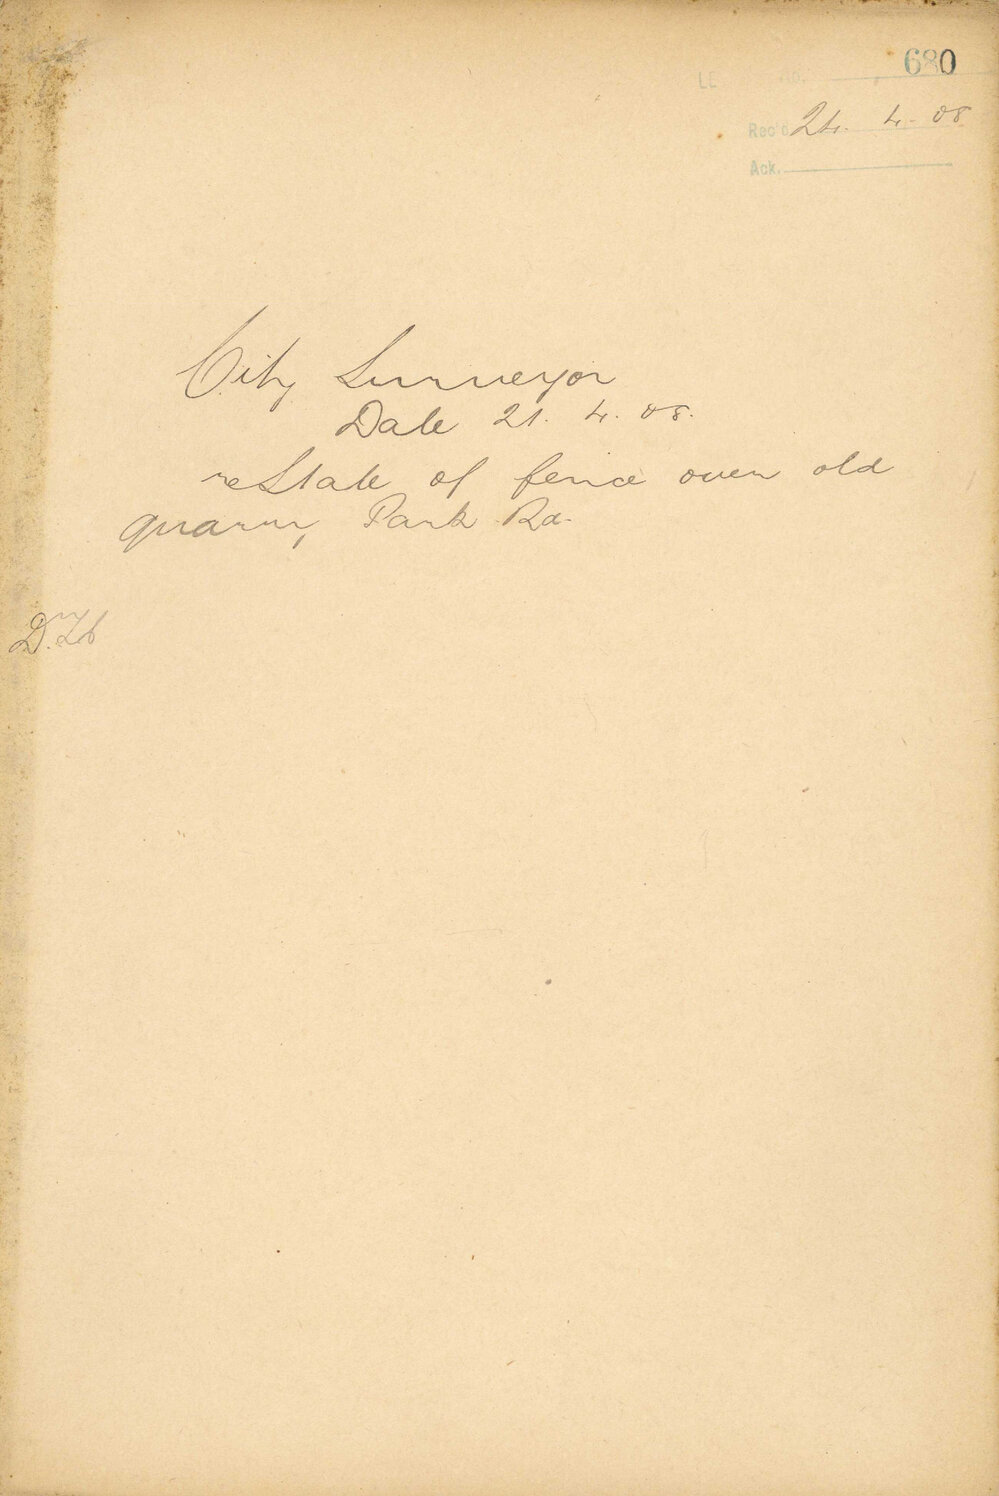 680
Rec'd 24. 4. 08
Ack.
City Surveyor
Date 21. 4. 08.
re State of fence over old
quarry, Park Rd.